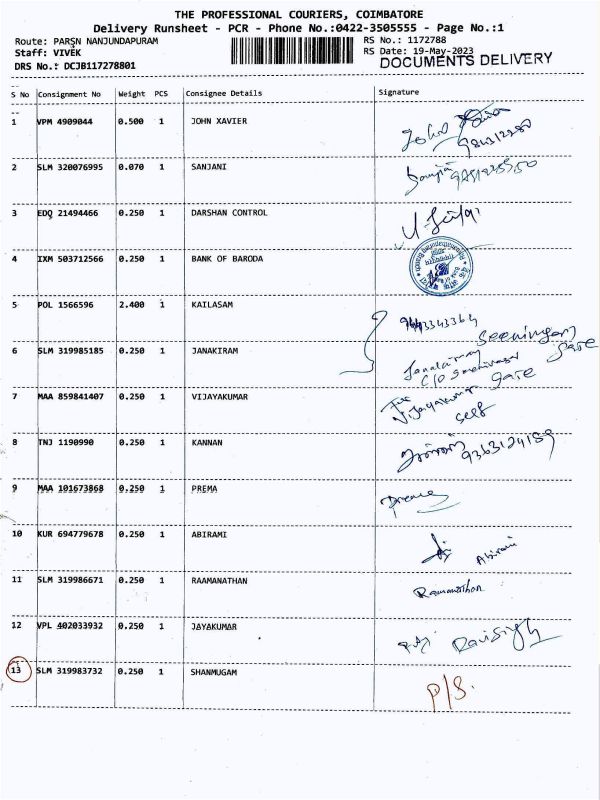 THE PROFESSIONAL COURIERS, COIMBATORE
Delivery Runsheet - PCR - Phone No.:0422-3505555 - Page No.:1
Route: PARSN NANJUNDAPURAM RS No.: 1172788
Staff: VIVEK RS Date: 19-May-2023
DRS No.: DCJB117278801 DOCUMENTS DELIVERY
S No Consignment No Weight PCS Consignee Details Signature
1 VPM 4909044 0.500 1 JOHN XAVIER John
2 SLM 320076995 0.070 1 SANJANI
3 EDQ 21494466 0.250 1 DARSHAN CONTROL
4 IXM 503712566 0.250 1 BANK OF BARODA
5 POL 1566596 2.400 1 KAILASAM
6 SLM 319985185 0.250 1 JANAKIRAM
7 MAA 859841407 0.250 1 VIJAYAKUMAR Vijayakumar
self
8 TNJ 1190990 0.250 1 KANNAN 9363124189
9 MAA 101673868 0.250 1 PREMA Prema
10 KUR 694779678 0.250 1 ABIRAMI Abirami
11 SLM 319986671 0.250 1 RAAMANATHAN Ramanathan
12 VPL 402033932 0.250 1 JAYAKUMAR
13 SLM 319983732 0.250 1 SHANMUGAM P/S.